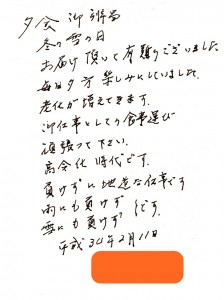 夕食 御弁当
冬の雪の日
お届け頂いて有難うございました
毎日夕方楽しみにしていました。
老化が増えてきます。
御仕事としての食事運び
頑張って下さい。
高令化時代です。
負けずに地道な仕事です
雨にも負けず
雪にも負けず です。
平成34年2月11日